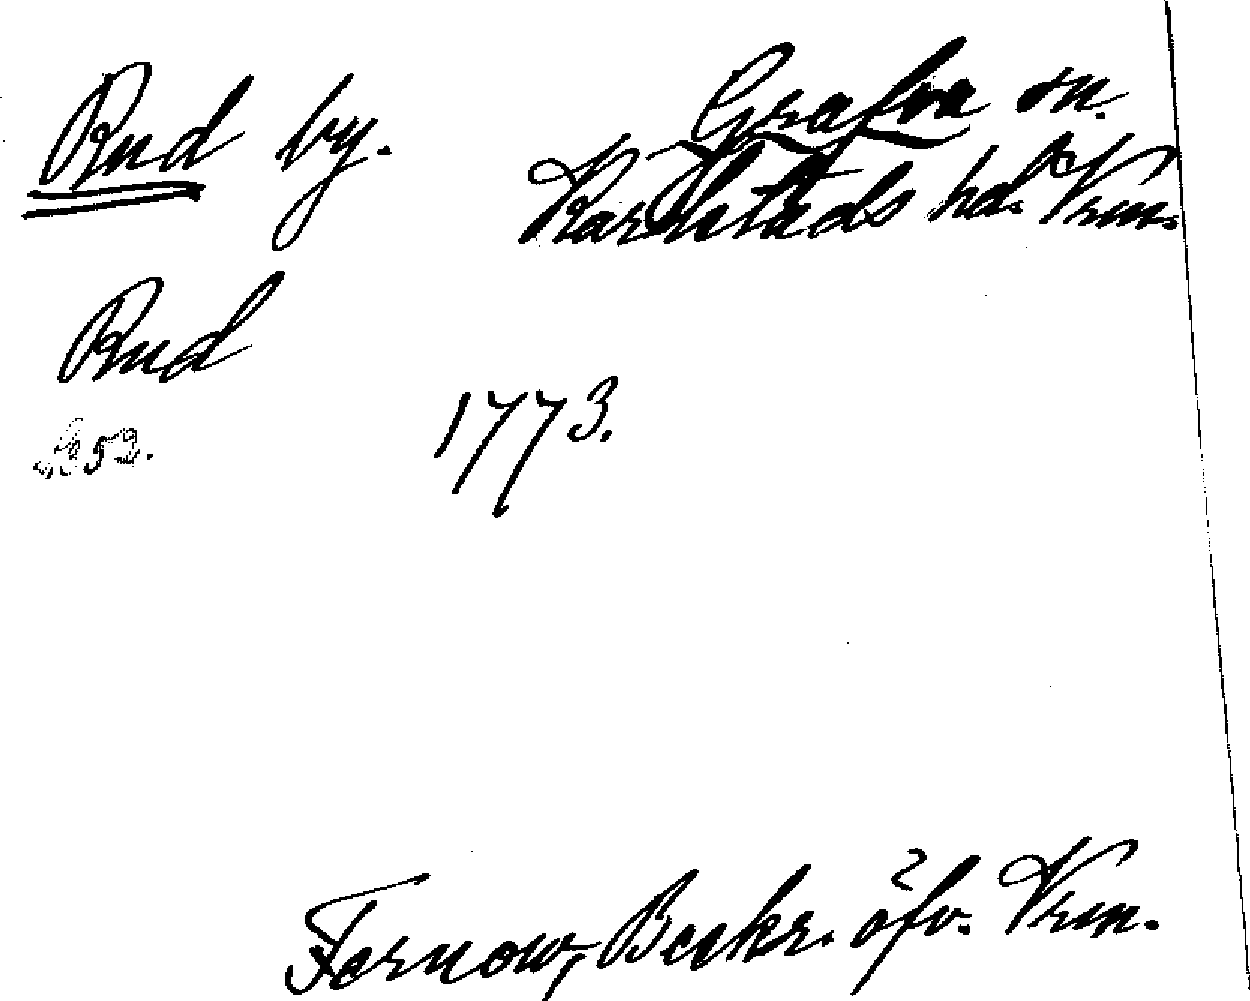 Rud by. Grafva sn.
Karlstads hd. Vrm.
Rud
1773.
Fernow, Beskr. öfv. Vrm.